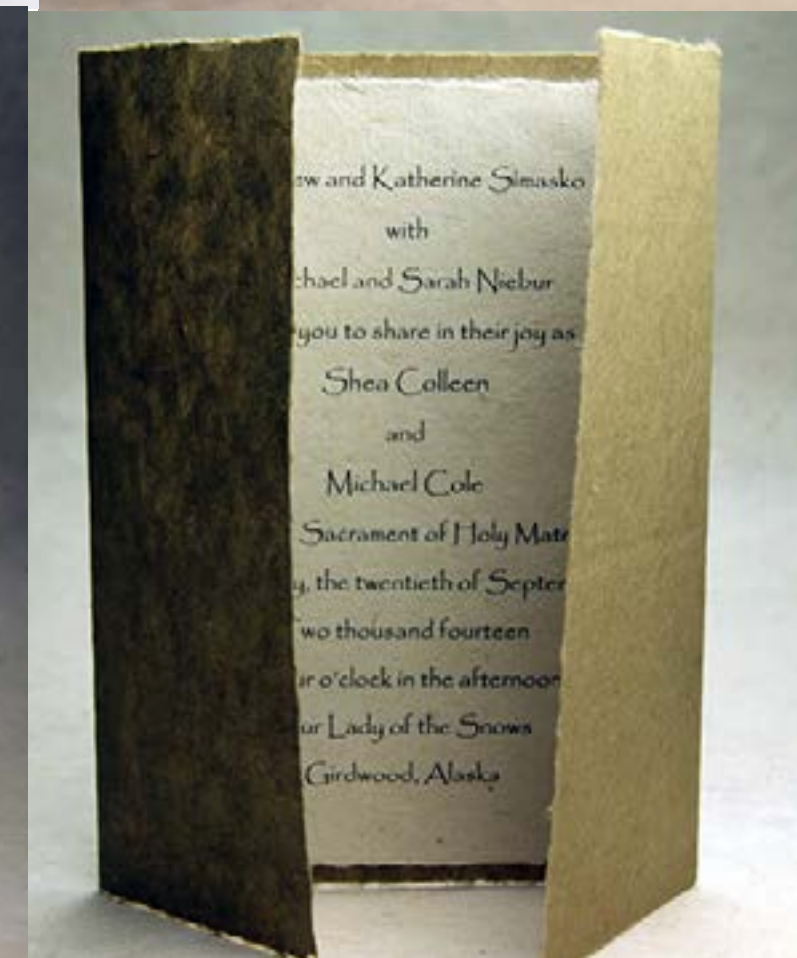 ew and Katherine Simasko
with
chael and Sarah Niebur
you to share in their joy as
Shea Colleen
and
Michael Cole
Sacrament of Holy Matr
y, the twentieth of Septem
Two thousand fourteen
ur o'clock in the afternoon
ur Lady of the Snows
Girdwood, Alaska